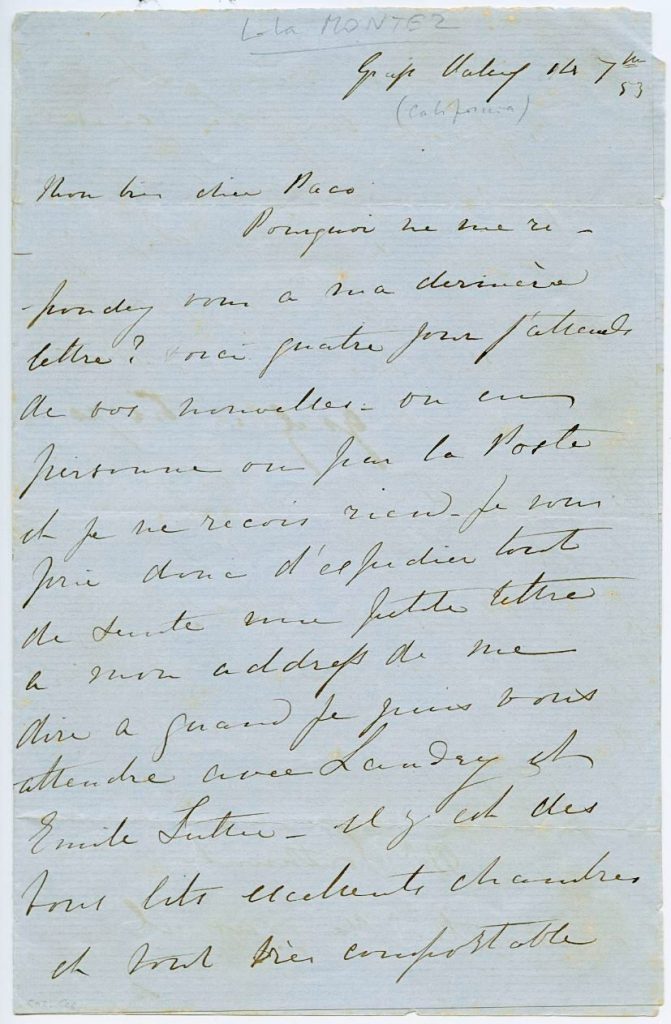 Lola MONTEZ
Grass Valley 14 7
53
(California)
Mon tres cher Paco
Pourquoi ne me re-
pondez vous a ma dernière
lettre? voici quatre jour j'attends
de vos nouvelles - ou en
personne ou par la Poste
et je ne recois rien - Je vous
prie donc d'expedier tout
de suite une petite lettre
a mon address de me
dire a quand je puis vous
attendre avec Landry et
Emile - il y est des
bons lits excellents chambres
et tout très comfortable